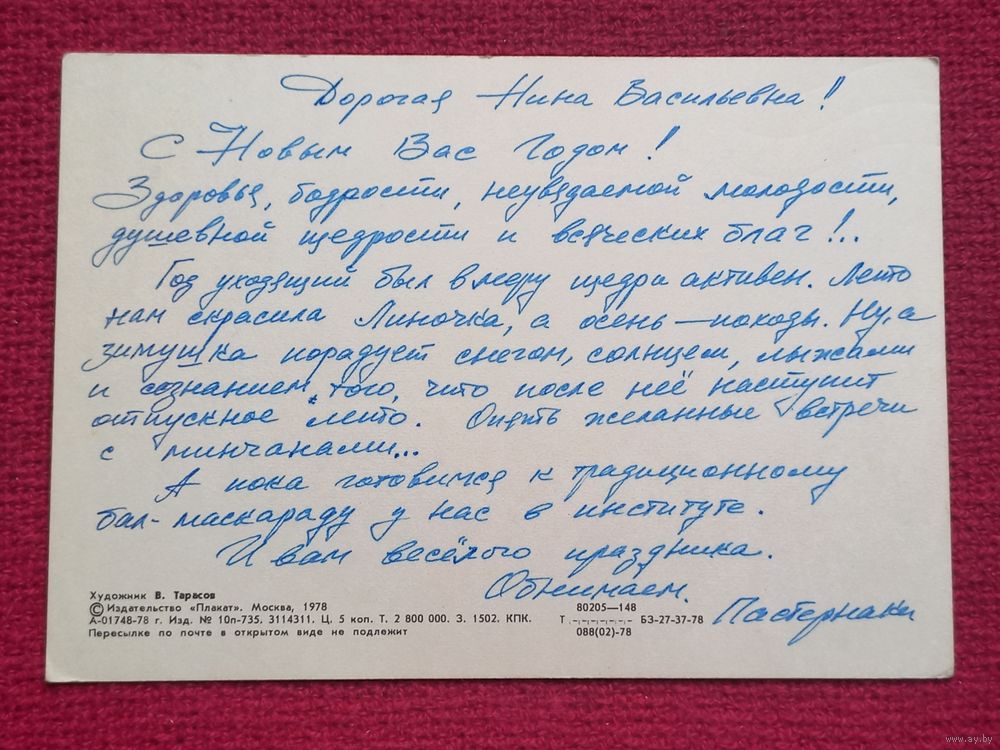 Дорогая Нина Васильевна!
С Новым Вас Годом!
Здоровья, бодрости, неувядаемой молодости,
душевной щедрости и всяческих благ!..
Год уходящий был в меру щедро активен. Лето
нам скрасила Линочка, а осень — походы. Ну, а
зимушка порадует снегом, солнцем, лыжами
и сознанием того, что после неё наступит
отпускное лето. Опять желанные встречи
с минчанами...
А пока готовимся к традиционному
бал-маскараду у нас в институте.
И вам весёлого праздника.
Обнимаем.
Пастернаки
Художник В. Тарасов
© Издательство «Плакат». Москва, 1978
А-01748-78 г. Изд. № 10п-735. 3114311. Ц. 5 коп. Т. 2 800 000. З. 1502. КПК.
Пересылке по почте в открытом виде не подлежит
80205—148
Т -.-.-.-.-.- БЗ-27-37-78
088(02)-78
www.ay.by